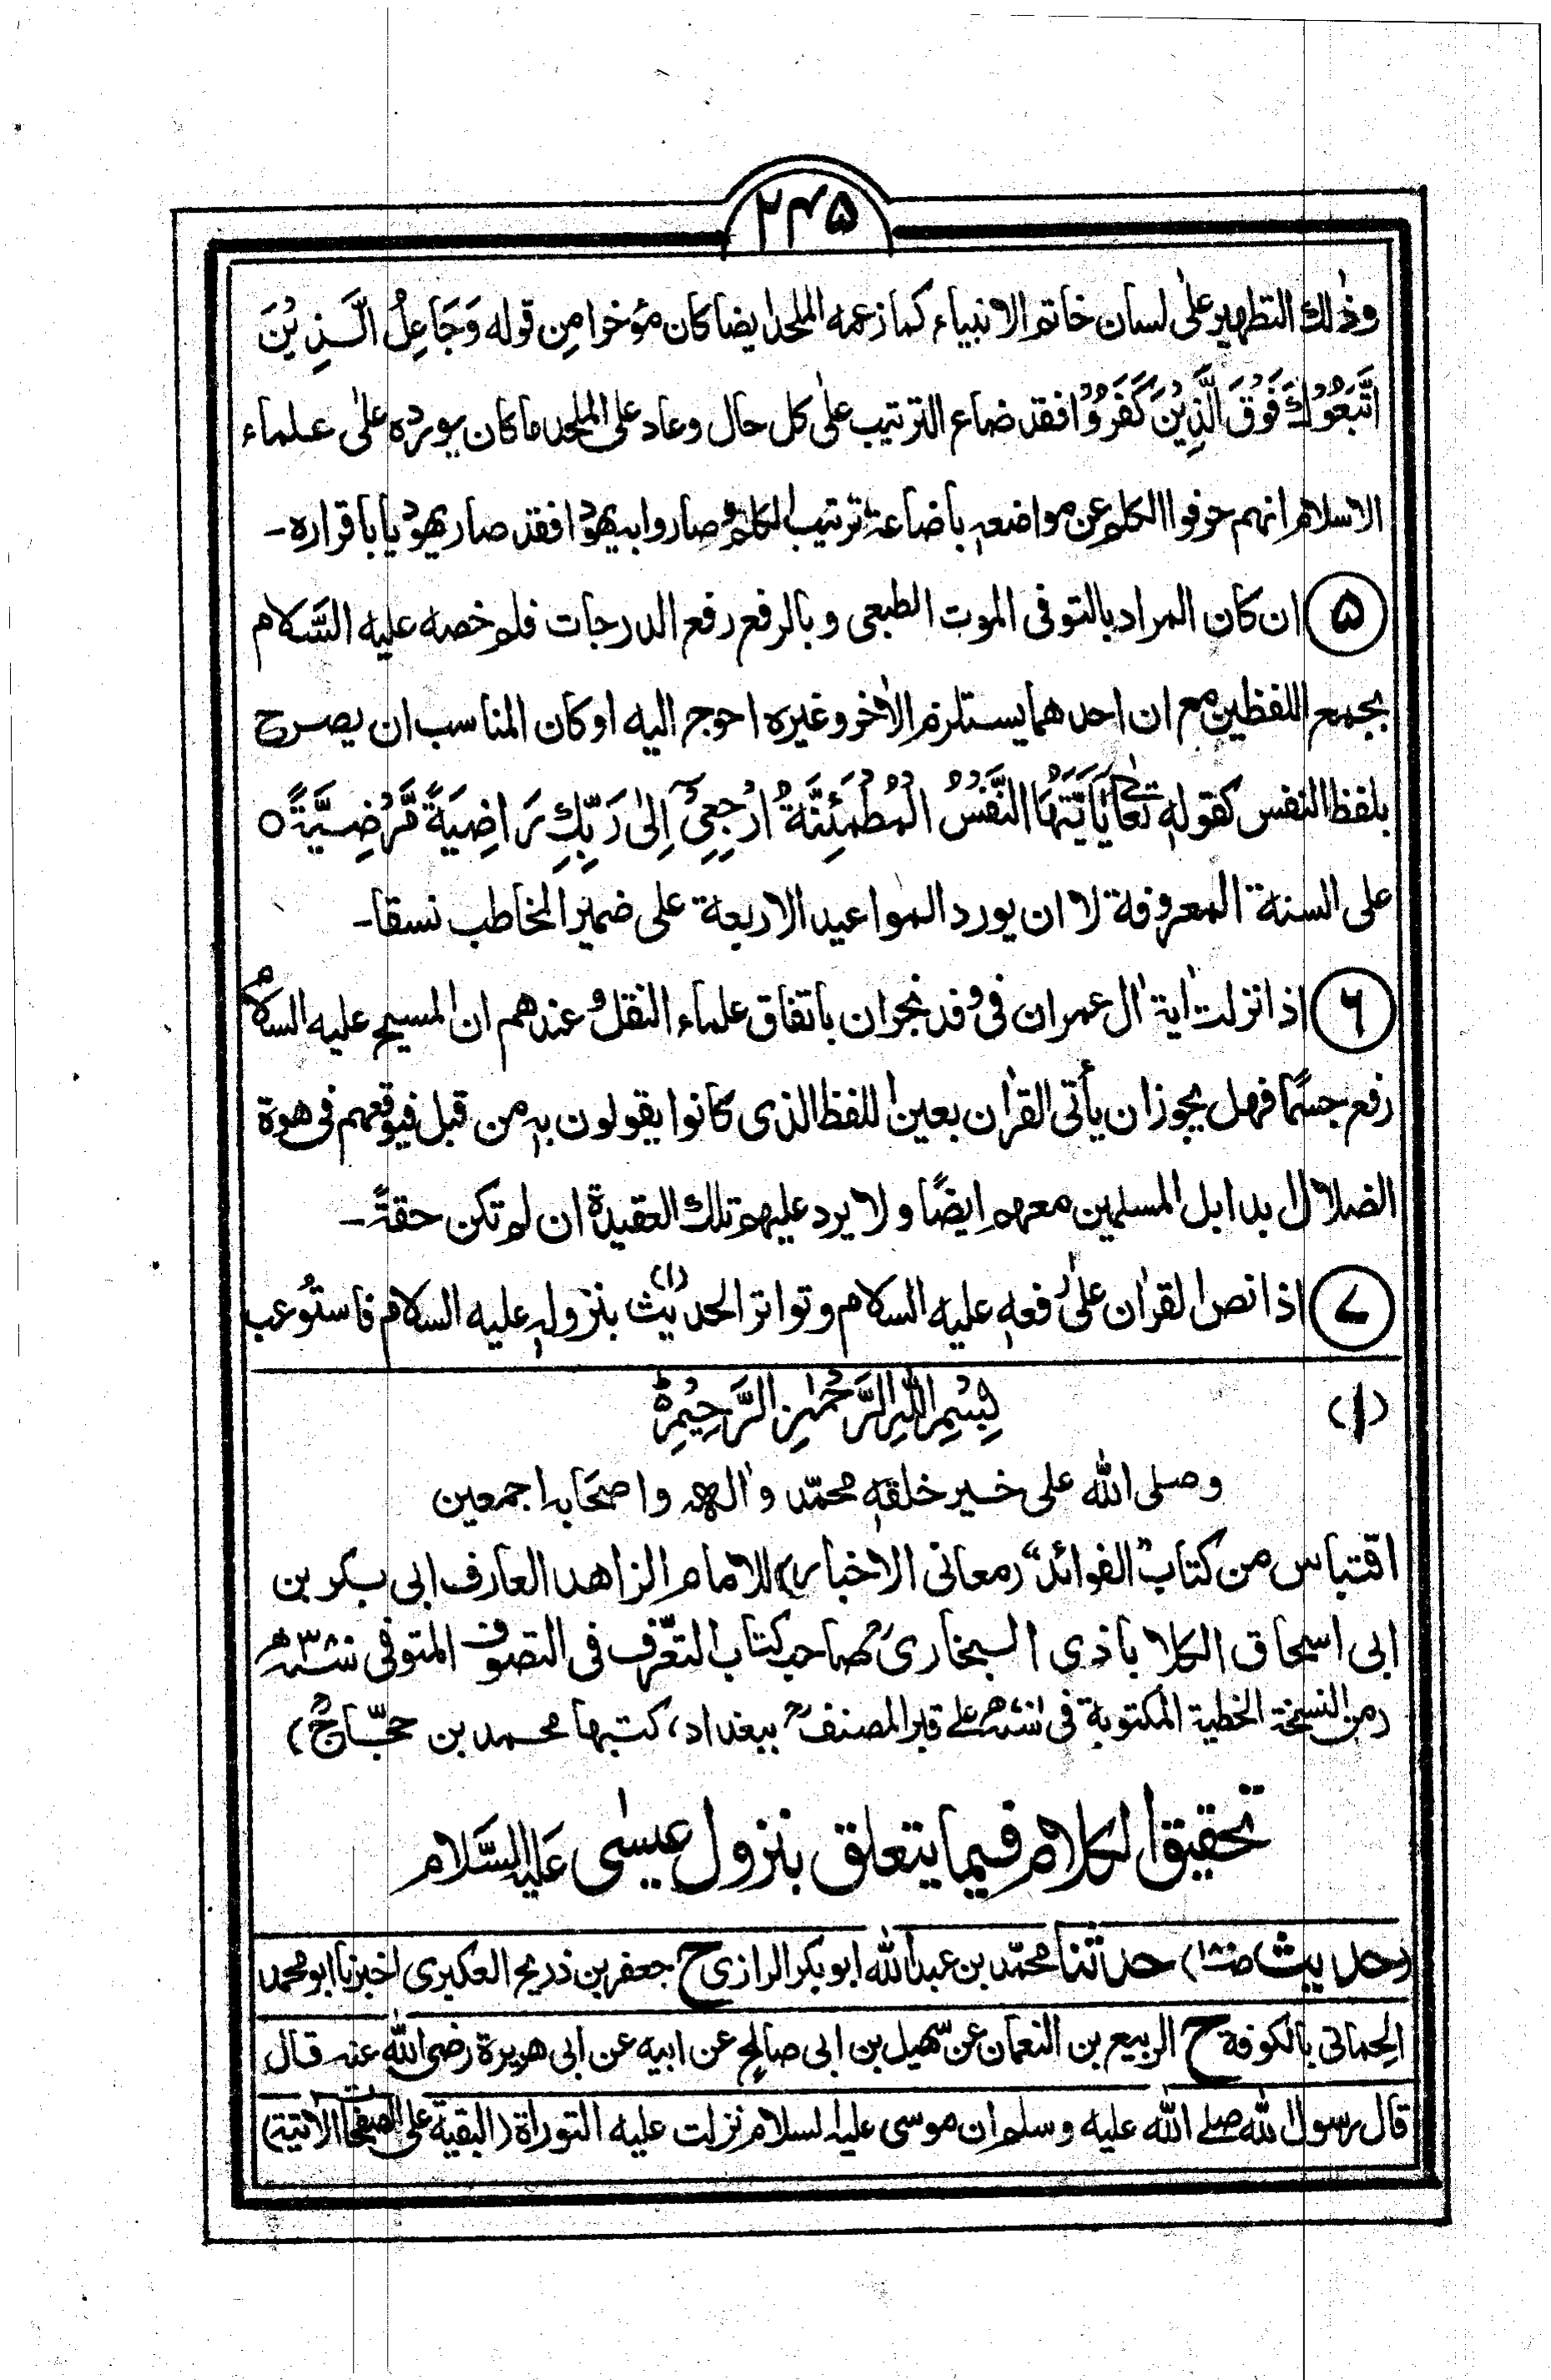 ۲۴۵
وذٰلك التطهير علٰى لسان خاتم الانبياء كما زعمه الملحد ايضا كان مؤخرا من قوله وَجَاعِلُ الَّذِيْنَ
اتَّبَعُوْكَ فَوْقَ الَّذِيْنَ كَفَرُوْٓا فقد ضاع الترتيب علٰى كل حال وعاد على الملحد ما كان يورده علٰى علماء
الاسلام انهم حرفوا الكلم عن مواضعه باضاعة ترتيب الكلم وصاروا به يهودا فقد صار يهوديا باقراره۔
۵ ان كان المراد بالتوفى الموت الطبعى وبالرفع رفع الدرجات فلم خصه عليه السَّلام
بجمع اللفظين مع ان احدهما يستلزم الاٰخر وغيره احوج اليه او كان المناسب ان يصرح
بلفظ النفس كقوله تعالٰى يٰٓاَيَّتُهَا النَّفْسُ الْمُطْمَئِنَّةُ ارْجِعِيْٓ اِلٰى رَبِّكِ رَاضِيَةً مَّرْضِيَّةً ○
على السنة المعروفة لا ان يورد المواعيد الاربعة على ضمير المخاطب نسقا۔
۶ اذا نزلت اٰية اٰل عمران فى وفد نجران باتفاق علماء النقل وعندهم ان المسيح عليه السلام
رفع جسمًا فهل يجوز ان يأتى القراٰن بعين اللفظ الذى كانوا يقولون به من قبل فيوقعهم فى هوة
الضلال ابدا بل المسلمين معهم ايضًا ولا يرد عليهم تلك العقيدة ان لم تكن حقةً۔
۷ اذا نص القراٰن علٰى رفعه عليه السلام وتواتر الحديث(۱) بنزوله عليه السلام فاستوعب
(۱) بِسْمِ اللّٰهِ الرَّحْمٰنِ الرَّحِيْمِ
وصلى الله على خير خلقه محمّد واٰله واصحابه اجمعين
اقتباس من كتاب "الفوائد" (معانى الاخبار) للامام الزاهد العارف ابى بكر بن
ابى اسحاق الكلاباذى البخارىؒ صاحب كتاب التعرّف فى التصوف المتوفى
(من النسخة الخطية المكتوبة فى على قبر المصنفؒ ببغداد، كتبها محمد بن حجّاجؒ)
تحقيق الكلام فيما يتعلق بنزول عيسٰى عَليه السَّلام
(حديث) حدثنا محمّد بن عبد الله ابو بكر الرازى ح جعفر بن ذريح العكبرى اخبرنا ابو محمد
الحمانى بالكوفة ح الربيع بن النعمان عن سهيل بن ابى صالح عن ابيه عن ابى هريرة رضى الله عنه قال
قال رسول الله صلے الله عليه وسلم ان موسى عليه السلام نزلت عليه التوراة (البقية على الصفحة الاٰتية)